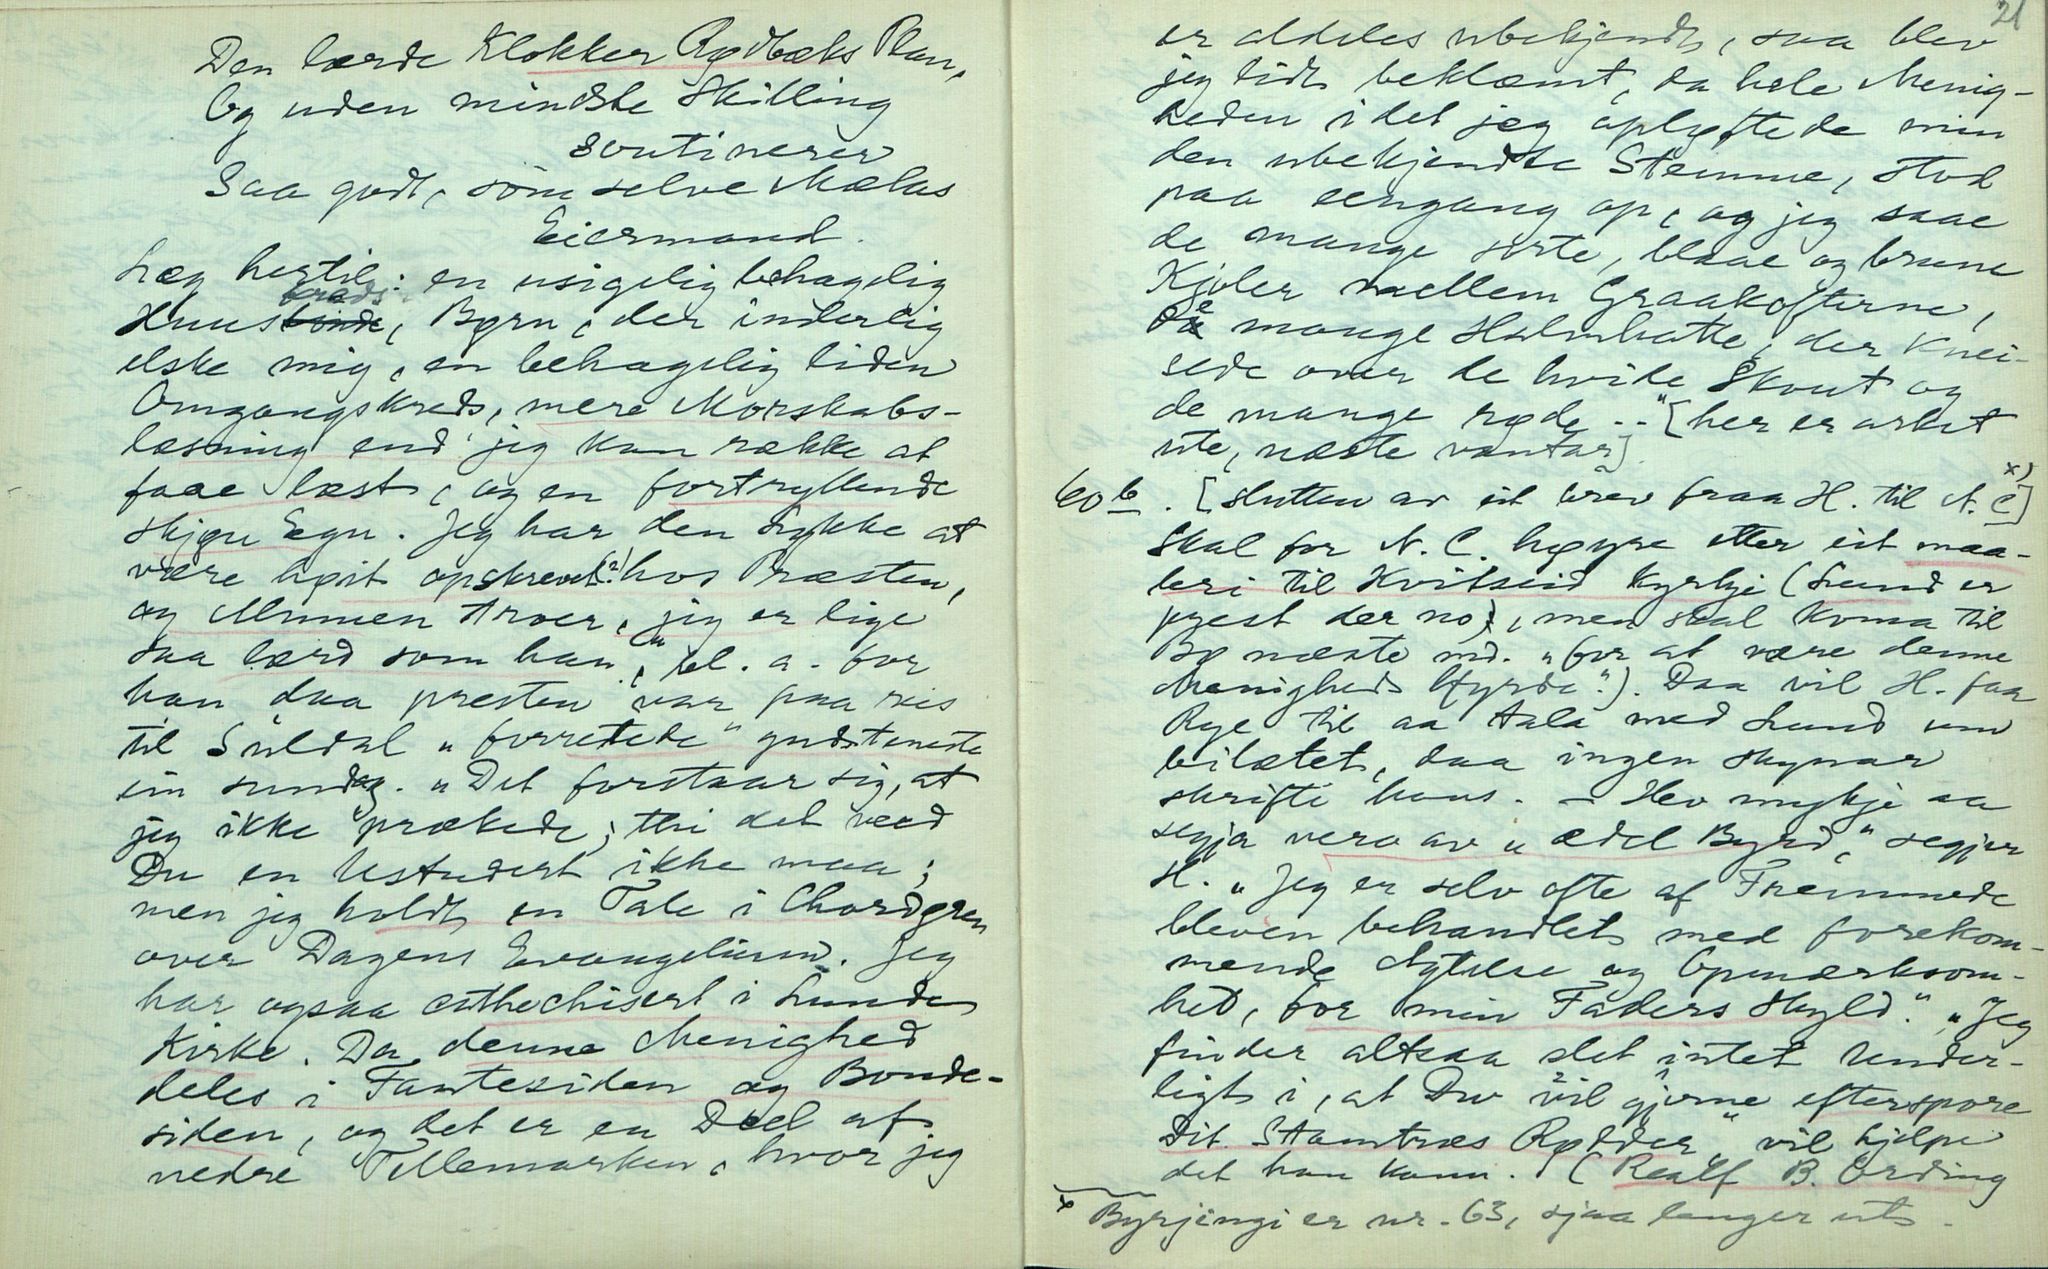 Den lærde Klokker Rødbæks Plan,
Og uden mindste Skilling
soutinerer
Saa godt, som selve Mælas
Eiermand.
Læg hertil: en usigelig behagelig
kreds
Huus, Børn, der inderlig
elske mig, en behagelig liden
Omgangskreds, mere Morskabs-
læsning end jeg kan række at
faae læst, og en fortryllende
skjøn Egn. Jeg har den Lykke at
være høit opskrevet(?) hos Præsten,
og Almuen troer, jeg er lige
saa lærd som han", bl. a. for
han daa presten var paa reis
til Suldal "forrettede" gudsteneste
ein sundag. "Det forstaar sig, at
jeg ikke prækede; thi det veed
Du en Ustudert ikke maa;
men jeg holdt en Tale i Chordøren
over Dagens Evangelium. Jeg
har ogsaa cathechisert i Lunde
Kirke. Da denne Menighed
deles i Fantesiden og Bonde-
siden, og det er en Deel af
nedre Tellemarken, hvor jeg
21
er aldeles ubekjendt, saa blev
jeg lidt beklæmt, da hele Menig-
heden idet jeg opløftede min
den ubekjendte Stemme, stod
paa eengang op, og jeg saae
de mange sorte, blaae og brune
Kjoler mellem Graakofterne,
De mange Halmhatte, der knei-
sede over de hvide Skout og
de mange røde .." [her er arket
ute, næste vantar]
60 b. [slutten av eit brev fraa H. til N. C x)]
Skal for N. C. høyre etter eit maa-
leri til Kvitseid kyrkje (Lund er
prest der no), men skal koma til
Bø næste md. "for at være denne
Menigheds Hyrde".). Daa vil H. faa
Rye til aa tala med Lund um
bilætet, daa ingen skynar
skrifti hans. – Hev mykje aa
segja vera av "ædel Byrd", segjer
H. "Jeg er selv ofte af Fremmede
bleven behandlet med forekom-
mende Agtelse og Opmærksom-
hed, for min Faders Skyld". "Jeg
finder altsaa slet intet Under-
ligt i, at Du vil² gjerne¹ efterspore
Dit Stamtræs Rødder", vil hjelpe
det han kann. (Realf B. Ording
x Byrjingi er nr. 63, sjaa lenger ut.